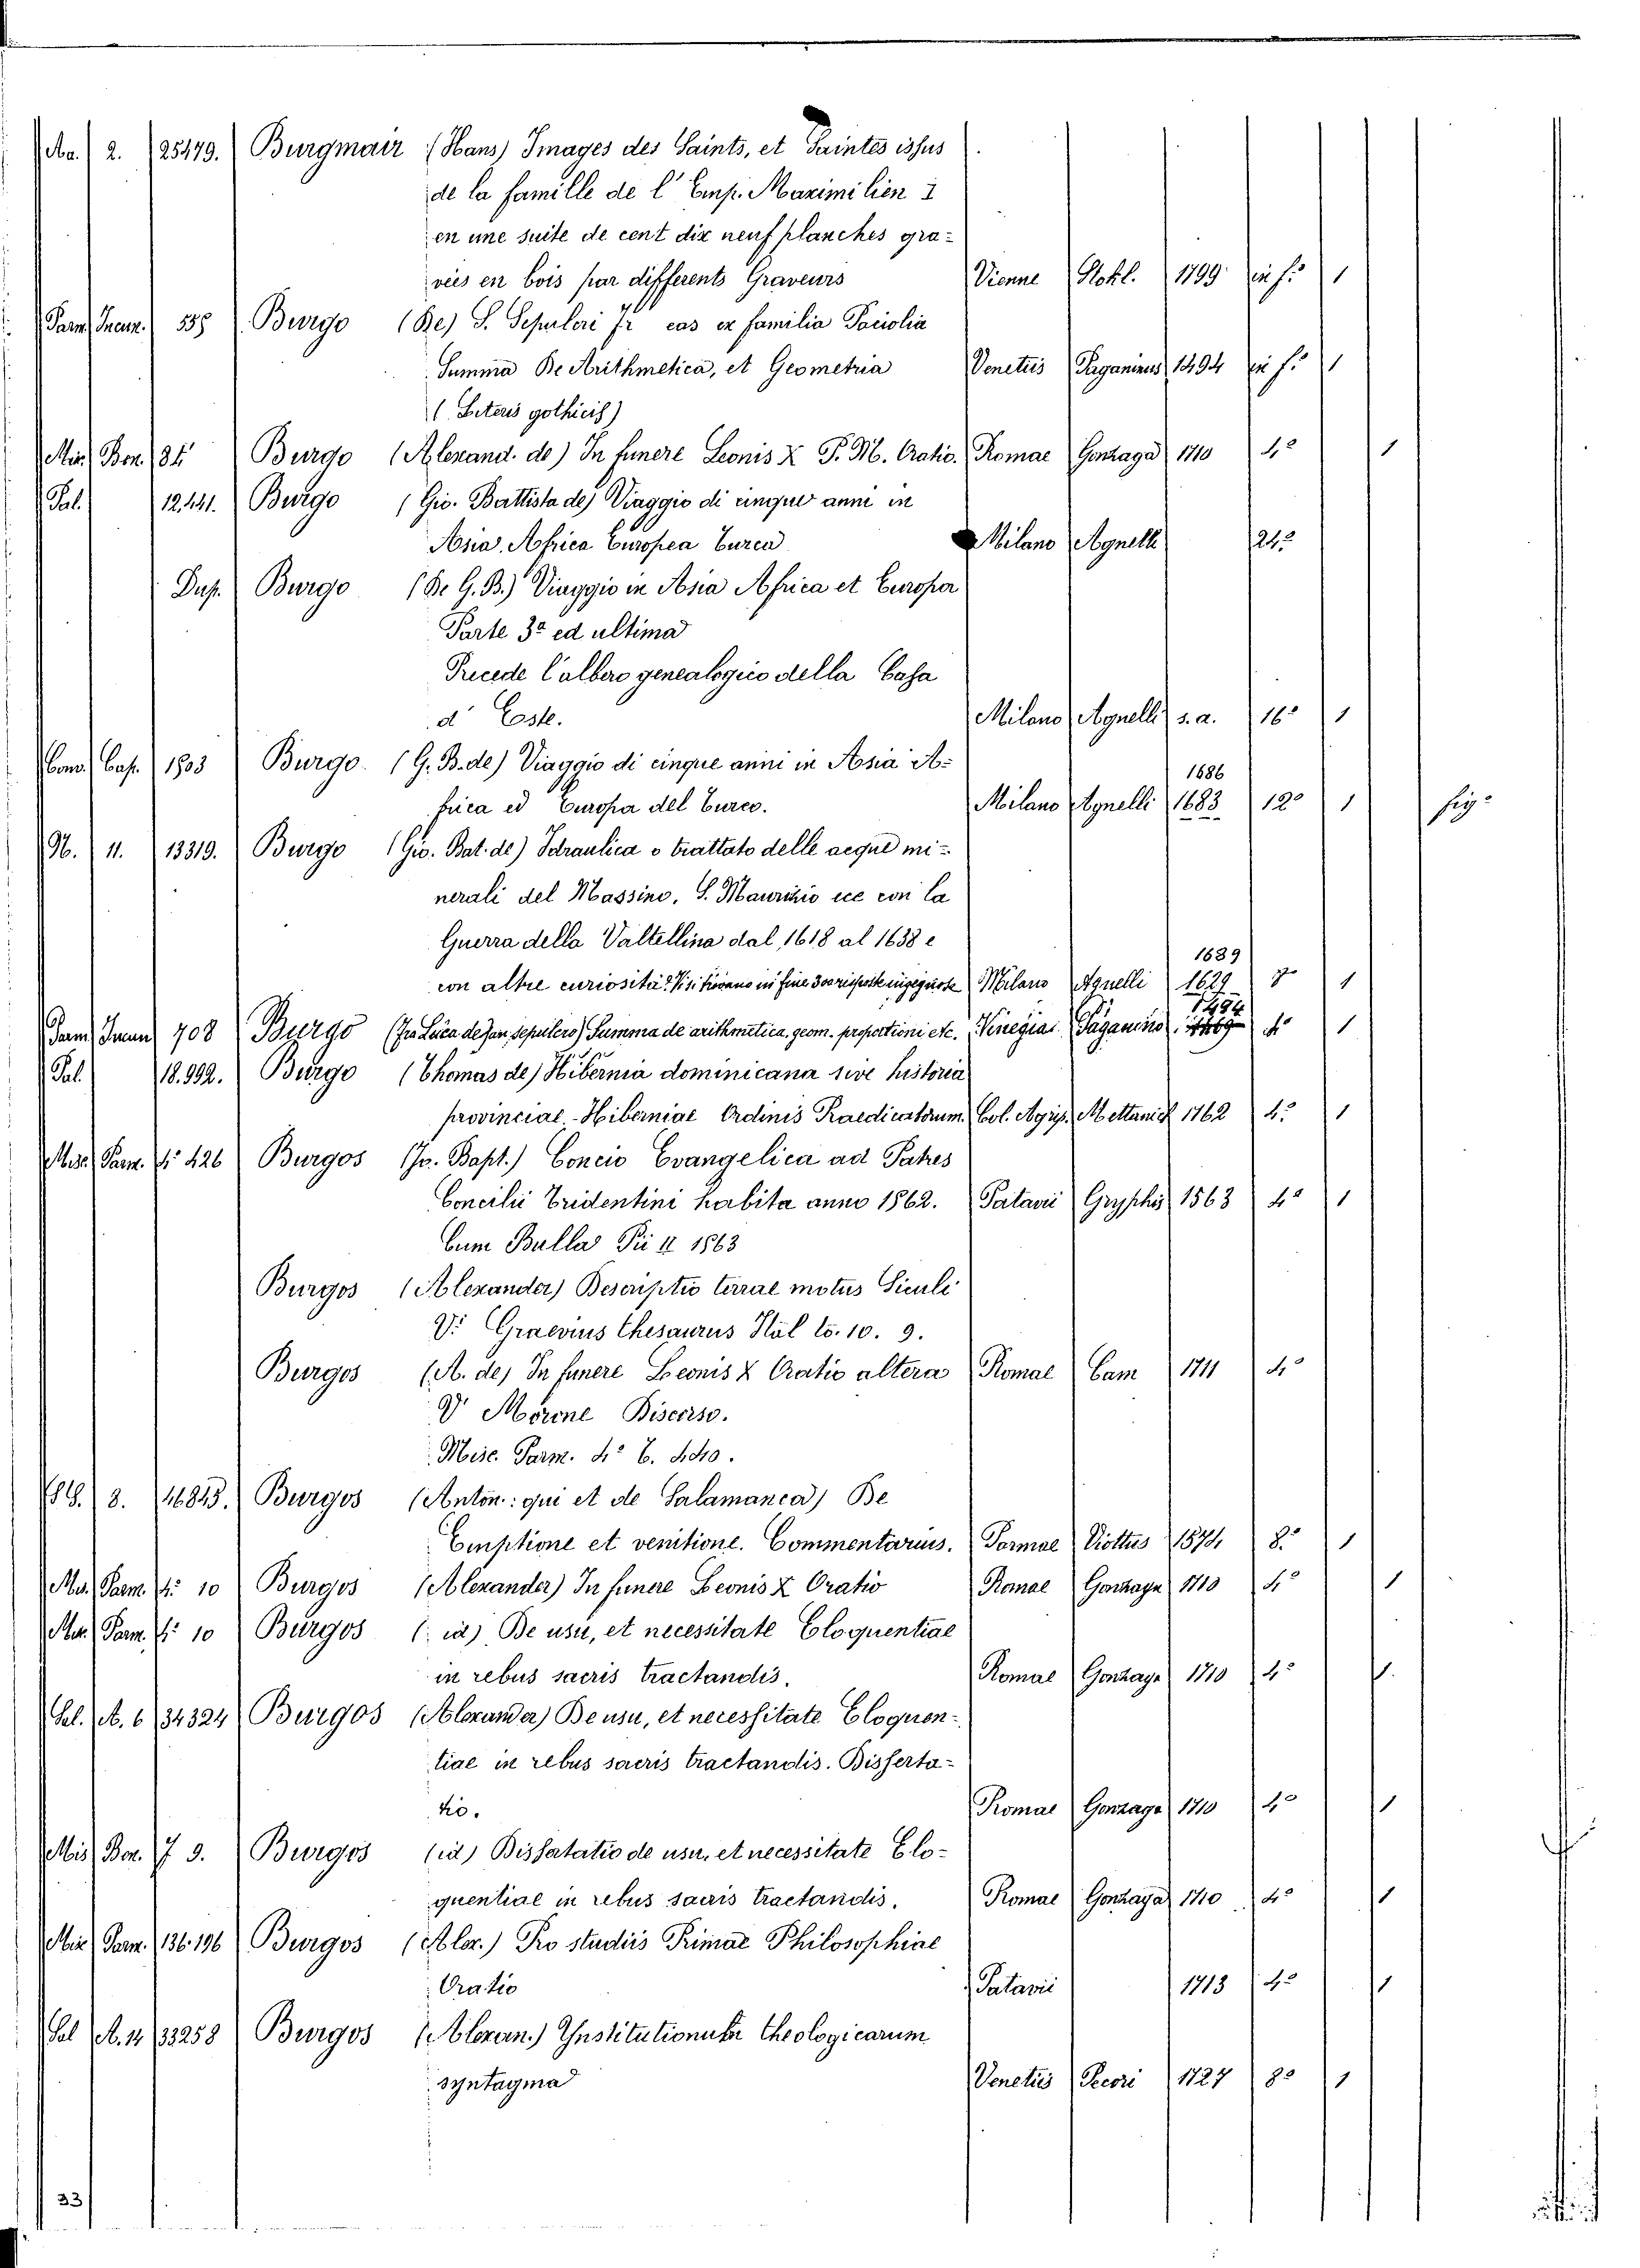 Aa. 2. 25479. Burgmair (Hans) Images des Saints, et Saintes issus
de la famille de l' Emp. Maximilien I
en une suite de cent dix neuf planches gra-
veés en bois par differents Graveurs Vienne 1799 in f.º 1
Parm. Incun. 535 Burgo (De) S. Sepulcri fr cas ex familia Paciolia
Summa De Arithmetica, et Geometria Venetiis Paganinus 1494 in f.º 1
(Literis gothicis)
Mis. Bon. 84 Burgo (Alexand. de) In funere Leonis X P. M. Oratio. Romae Gonzaga 1710 4.º 1
Pal. 12,441. Burgo (Gio. Battista de) Viaggio di cinque anni in
Asia, Africa Europea Turca Milano Agnelli 24.º
Dup. Burgo (De G. B.) Viaggio in Asia Africa et Europa
Parte 3.ª ed ultima
Precede l'albero genealogico della Casa
d' Este. Milano Agnelli s. a. 16.º 1
Com. Cas. 1803 Burgo. (G. B. de) Viaggio di cinque anni in Asia A-
1686
frica ed Europa del Turco. Milano Agnelli 1683 12.º 1 fig.
N. 11. 13319. Burgo (Gio. Bat. de) Idraulica o trattato delle acque mi-
nerali del Massino, S. Maurizio ecc con la
Guerra della Valtellina dal 1618 al 1638 e
1639
con altre curiosità. Vi si trovano in fine 300 risposte ingegnose Milano Agnelli 1629 1
1494
Parm. Incun. 708 Burgo (Fra Luca de San Sepulcro) Summa de arithmetica, geom. proportioni etc. Vinegia Paganino 1 
Pal. 18.992. Burgo (Thomas de) Hibernia dominicana sive historia
provinciae - Hiberniae Ordinis Praedicatorum. Col. Agrip. Metternich 1762 4.º 1
Misc. Parm. 4.º 426 Burgos (Jo. Bapt.) Concio Evangelica ad Patres
Concilii Tridentini habita anno 1562. Patavii Gryphis 1563 4.º 1
Cum Bulla Pii II 1563
Burgos (Alexander) Descriptio terrae motus Siculi
V. Graevius Thesaurus Ital to. 10. 9.
Burgos (A. de) In funere Leonis X Oratio altera Romae Cam 1711 4.º
V Morone Discorso.
Misc. Parm. 4.º 6. 440.
8. 16845. Burgos (Anton: qui et de Salamanca) De
Emptione et venitione. Commentarius. Parmae Viottus 1574. 8.º 1
Mis. Parm. 4.º 10 Burgos (Alexander) In funere Leonis X Oratio Romae Gonzaga 1710 4.º 1
Mis. Parm. 4.º 10 Burgos (id) De usu, et necessitate Eloquentiae
in rebus sacris tractandis. Romae Gonzaga 1710 4.º 1.
Sal. A. 6 34324 Burgos (Alexander) De usu, et necessitate Eloquen-
tiae in rebus sacris tractandis. Disserta-
tio. Romae Gonzaga 1710 4.º 1
Mis. Bon. 7 9. Burgos (id) Dissertatio de usu, et necessitate Elo-
quentiae in rebus sacris tractandis. Romae Gonzaga 1710 4.º 1
Mis. Parm. 136.196 Burgos (Alex.) Pro studiis Primae Philosophiae
Oratio Patavii 1713 4.º 1
Sal A. 14 33258 Burgos (Alexan.) Institutionum Theologicarum
syntagma Venetiis Pecori 1727 8.º 1
33